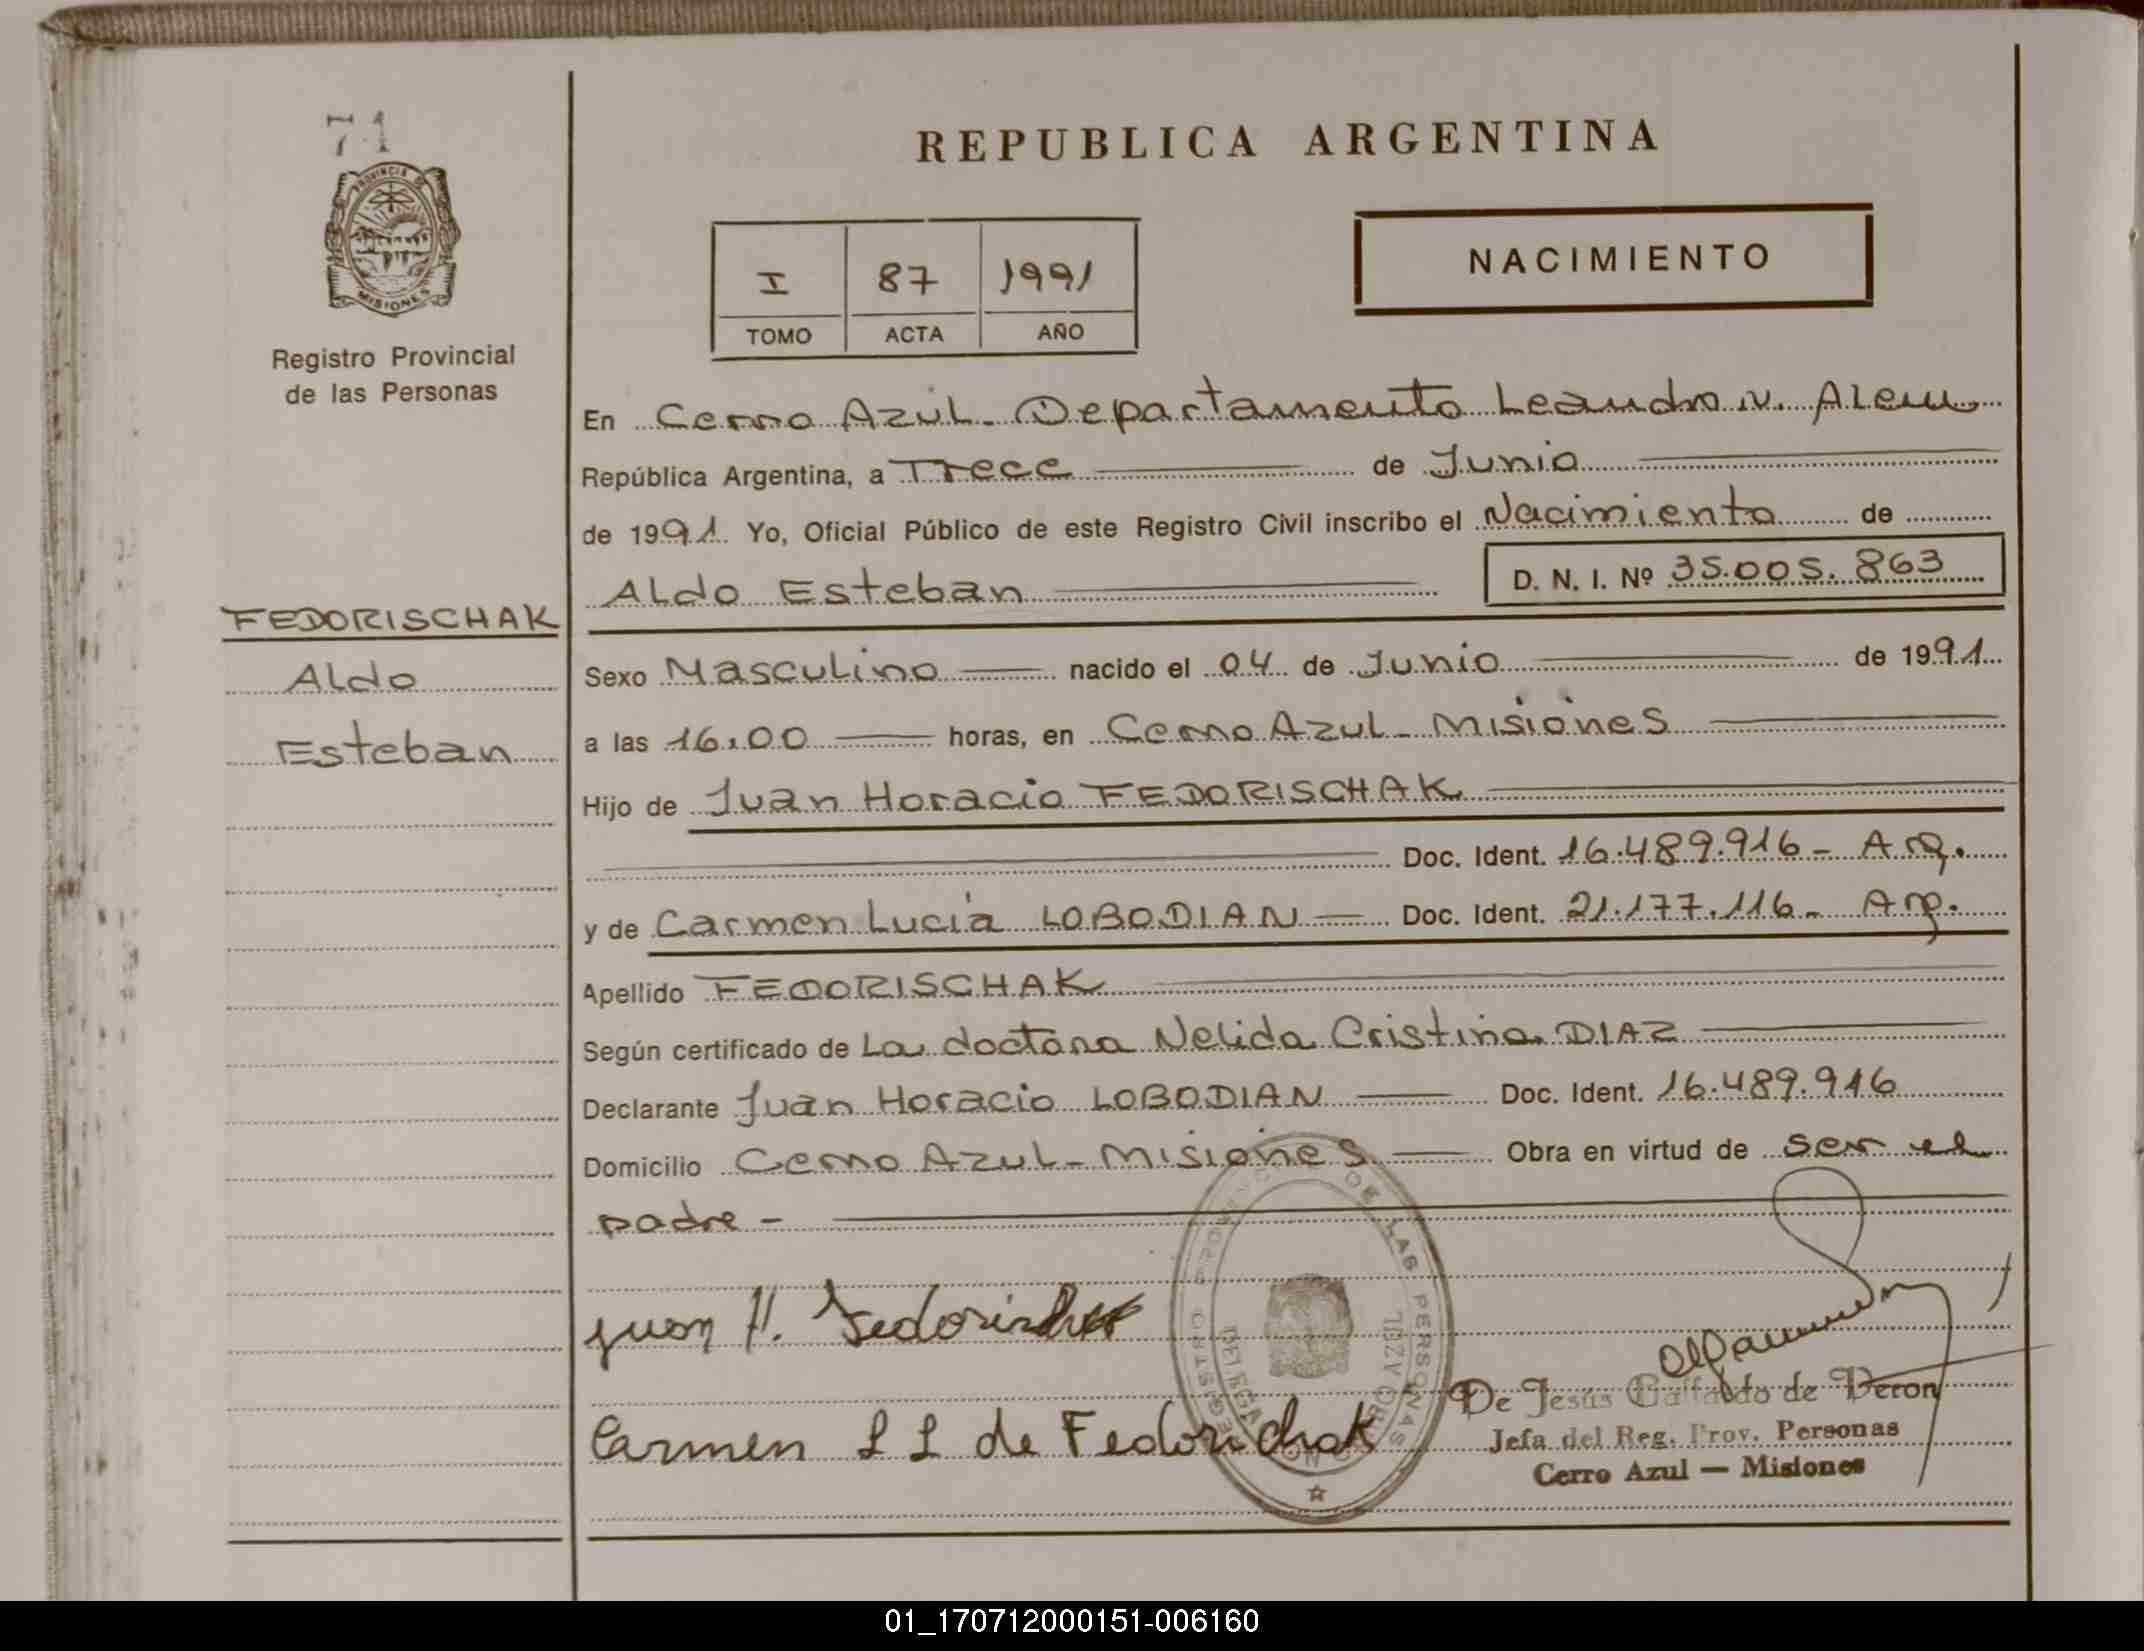 71
PROVINCIA DE
MISIONES
Registro Provincial
de las Personas
FEDORISCHAK
Aldo
Esteban
REPUBLICA ARGENTINA
I 87 1991
TOMO ACTA AÑO
NACIMIENTO
En Cerro Azul - Departamento Leandro N. Alem
República Argentina, a Trece de Junio
de 1991. Yo, Oficial Público de este Registro Civil inscribo el Nacimiento de
Aldo Esteban D. N. I. Nº 35.005.863
Sexo Masculino nacido el 04 de Junio de 1991
a las 16,00 horas, en Cerro Azul - Misiones
Hijo de Juan Horacio FEDORISCHAK
Doc. Ident. 16.489.916 - Arg.
y de Carmen Lucia LOBODIAN Doc. Ident. 21.177.116 - Arg.
Apellido FEDORISCHAK
Según certificado de La doctora Nelida Cristina DIAZ
Declarante Juan Horacio LOBODIAN Doc. Ident. 16.489.916
Domicilio Cerro Azul - Misiones Obra en virtud de ser el
padre -
REGISTRO PROVINCIAL DE LAS PERSONAS
DELEGACION CERRO AZUL
Juan H. Fedorischak
Carmen L L de Fedorichak
De Jesús Gallardo de Veron
Jefa del Reg. Prov. Personas
Cerro Azul — Misiones
01_170712000151-006160